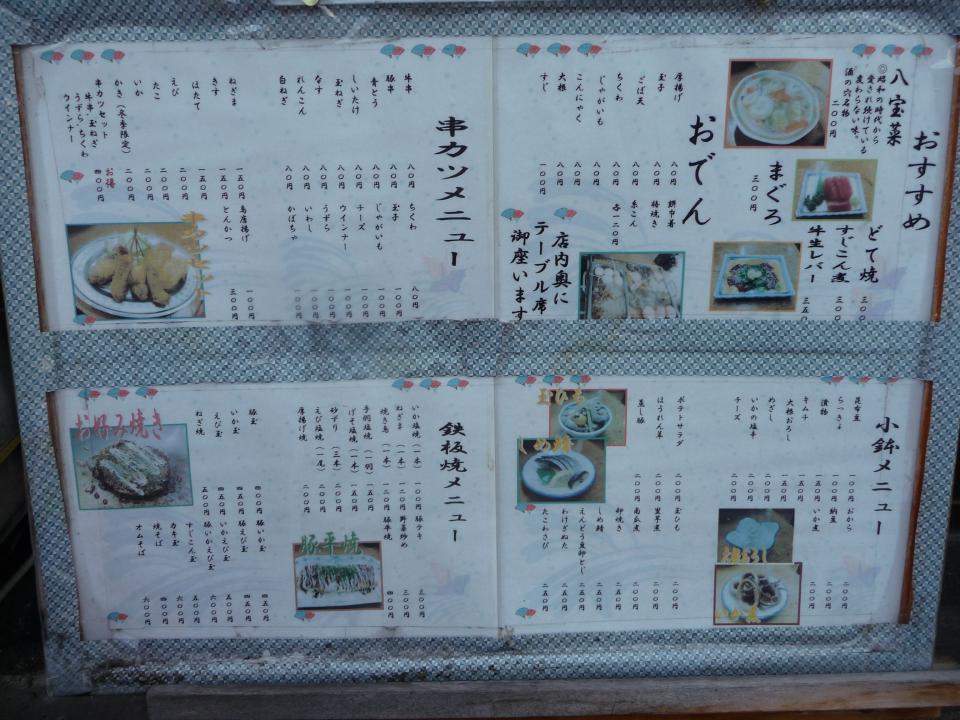 おすすめ
八宝菜
◎昭和の時代から
愛され続けている
変わらない味。
酒の穴名物
二〇〇円
まぐろ
三〇〇円
どて焼
すじこん煮
牛生レバー
おでん
厚揚げ 八〇円
玉子 八〇円
ごぼ天 八〇円
ちくわ 八〇円
じゃがいも 八〇円
こんにゃく 八〇円
大根 八〇円
すじ 一〇〇円
餅巾着
梅焼き
糸こん
各一二〇円
店内奥に
テーブル席
御座います
串カツメニュー
牛串 八〇円
豚串 八〇円
青とう 八〇円
しいたけ 八〇円
玉ねぎ 八〇円
なす 八〇円
れんこん 八〇円
白ねぎ 八〇円
ちくわ 八〇円
玉子 一〇〇円
じゃがいも 一〇〇円
チーズ 一〇〇円
ウインナー 一〇〇円
うずら 一〇〇円
いわし 一〇〇円
かぼちゃ 一〇〇円
ねぎま 一五〇円
きす 一五〇円
ほたて 一五〇円
えび 二〇〇円
たこ 二〇〇円
いか 二〇〇円
かき(冬季限定) 二〇〇円
串カツセット
牛串・玉ねぎ
うずら・ちくわ
ウインナー
お得
四〇〇円
鳥唐揚げ 一〇〇円
とんかつ 三〇〇円
小鉢メニュー
昆布豆 一〇〇円
らっきょ 一〇〇円
漬物 一〇〇円
キムチ 一五〇円
大根おろし 一五〇円
めざし 一〇〇円
いかの塩辛 一〇〇円
チーズ 一〇〇円
ポテトサラダ 二〇〇円
ほうれん草 二〇〇円
蒸し豚 二〇〇円
おから 二〇〇円
納豆 二〇〇円
いか煮 二〇〇円
玉ひも 二〇〇円
里芋煮 二〇〇円
南瓜煮 二〇〇円
卵焼き 二五〇円
しめ鯖 二五〇円
えんどう豆卵とじ 二五〇円
わけぎぬた 二五〇円
たこわさび 二五〇円
玉ひも
しめ鯖
いか煮
鉄板焼メニュー
いか塩焼(一本) 一〇〇円
ねぎま(一本) 一二〇円
焼き鳥(一本) 一二〇円
手羽塩焼(一羽) 一五〇円
げそ塩焼(一本) 一五〇円
砂ずり(三本) 二〇〇円
えび塩焼(一尾) 二〇〇円
厚揚げ焼 二〇〇円
豚テキ 三〇〇円
野菜炒め 三〇〇円
豚平焼 四〇〇円
豚平焼
お好み焼き
豚玉 四〇〇円
いか玉 四五〇円
えび玉 四五〇円
ねぎ焼 五〇〇円
豚いか玉 四五〇円
豚えび玉 四五〇円
いかえび玉 五〇〇円
豚いかえび玉 六〇〇円
すじこん玉 五〇〇円
カキ玉 六〇〇円
焼そば 四〇〇円
オムそば 六〇〇円